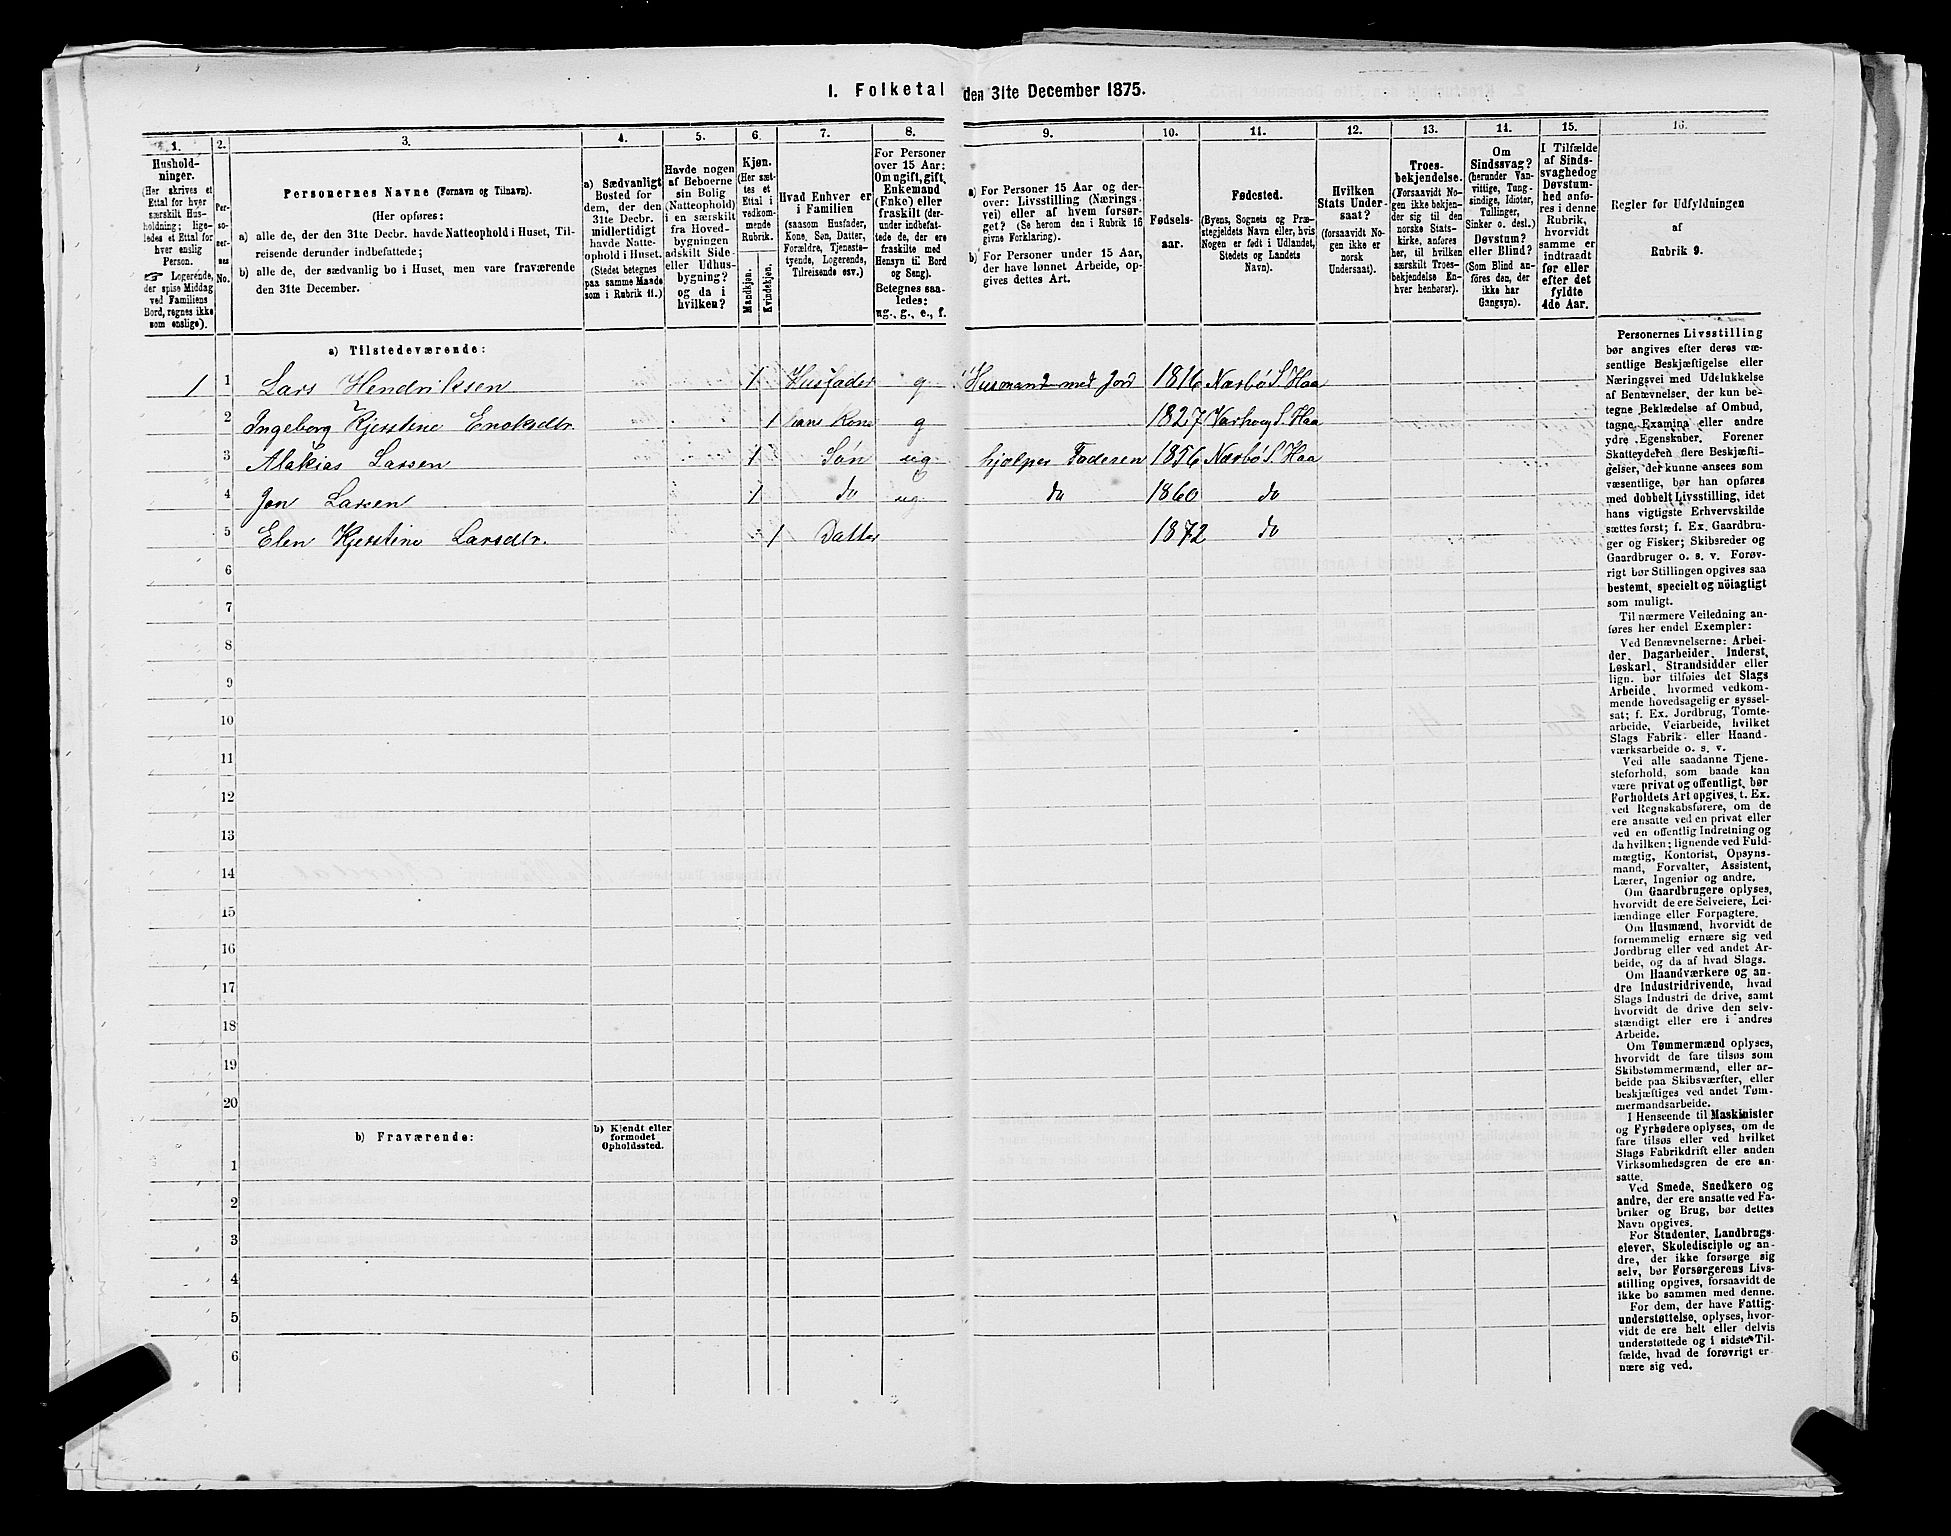 I. Folketal den 31te December 1875.
1. 2. 3. 4. 5. 6. 7. 8. 9. 10. 11. 12. 13. 14. 15. 16.
Husholdninger.
(Her skrives et
Ettal for hver
særskilt Husholdning; ligeledes et Ettal for
hver enslig
Person.
☞ Logerende,
der spise Middag
ved Familiens
Bord, regnes ikke
som enslige).
Personernes No.
Personernes Navne (Fornavn og Tilnavn).
(Her opføres:
a) alle de, der den 31te Decbr. havde Natteophold i Huset, Tilreisende derunder indbefattede;
b) alle de, der sædvanlig bo i Huset, men vare fraværende
den 31te December.
a) Sædvanligt
Bosted for
dem, der den
31te Decbr.
midlertidigt
havde Natteophold i Huset.
(Stedet betegnes
paa samme Maade
som i Rubrik 11.)
Havde nogen
af Beboerne
sin Bolig
(Natteophold)
i en særskilt
fra Hovedbygningen
adskilt Side-
eller Udhusbygning?
og da i
hvilken?
Kjøn.
(Her sættes et
Ettal i
vedkommende
Rubrik.
Mandkjøn.
Kvindekjøn.
Hvad Enhver er
i Familien
(saasom Husfader,
Kone, Søn, Datter,
Forældre, Tjenestetyende, Logerende,
Tilreisende osv.)
For Personer
over 15 Aar:
Om ugift, gift,
Enkemand
(Enke) eller
fraskilt (derunder indbefattede de, der ere
fraskilte med
Hensyn til Bord
og Seng).
Betegnes saaledes:
ug., g., e., f.
a) For Personer 15 Aar og derover: Livsstilling (Næringsvei) eller af hvem forsørget? (Se herom den i Rubrik 16
givne Forklaring).
b) For Personer under 15 Aar,
der have lønnet Arbeide, opgives dettes Art.
Fødselsaar.
Fødested.
(Byens, Sognets og Præstegjeldets Navn eller, hvis
Nogen er født i Udlandet,
Stedets og Landets
Navn).
Hvilken
Stats Undersaat?
(forsaavidt Nogen ikke er
norsk
Undersaat).
Troesbekjendelse.
(Forsaavidt Nogen ikke bekjender sig til den
norske Statskirke, anføres
her, til hvilken
særskilt Troesbekjendelse Enhver henhører).
Om
Sindssvag?
(herunder Vanvittige, Tungsindige, Idioter,
Tullinger,
Sinker o. desl.)
Døvstum?
eller Blind?
(Som Blind anføres den, der
ikke har
Gangsyn).
I Tilfælde
af Sindssvaghed og
Døvstumhed anføres i denne
Rubrik,
hvorvidt
samme er
indtraadt
før eller
efter det
fyldte
4de Aar.
Regler for Udfyldningen
af
Rubrik 9.
a) Tilstedeværende:
1 1 Lars Hendriksen 1 Husfader g Husmand med Jord 1816 Nærbø S. Haa
2 Ingeborg Kjerstine Enoksdtr. 1 hans Kone g 1827 Varhoug S. Haa
3 Malakias Larsen 1 Søn ug hjælper Faderen 1856 Nærbø S. Haa
4 Jon Larsen 1 do ug do 1860 do
5 Elen Kjerstine Larsdtr. 1 Datter 1872 do
6
7
8
9
10
11
12
13
14
15
16
17
18
19
20
b) Fraværende:
b) Kjendt eller
formodet
Opholdssted.
1
2
3
4
5
6
Personernes Livsstilling
bør angives efter deres væsentlige Beskjæftigelse eller
Næringsvei med Udelukkelse
af Benævnelser, der kun betegne Beklædelse af Ombud,
tagne Examina eller andre
ydre Egenskaber. Forener
Skatteyderen flere Beskjæftigelser, der kunne ansees som
væsentlige, bør han opføres
med dobbelt Livsstilling, idet
hans vigtigste Erhvervskilde
sættes først; f. Ex. Gaardbruger og Fisker; Skibsreder og
Gaardbruger o. s. v. Forøvrigt bør Stillingen opgives saa
bestemt, specielt og nöiagtigt
som muligt.
Til nærmere Veiledning anføres her endel Exempler:
Ved Benævnelserne: Arbeider, Dagarbeider, Inderst,
Løskarl, Strandsidder eller
lign. bør tilføies det Slags
Arbeide, hvormed vedkommende hovedsagelig er sysselsat; f. Ex. Jordbrug, Tomtearbeide, Veiarbeide, hvilket
Slags Fabrik- eller Haandværksarbeide o. s. v.
Ved alle saadanne Tjenesteforhold, som baade kan
være privat og offentligt, bør
Forholdets Art opgives, t. Ex.
ved Regnskabsførere, om de
ere ansatte ved en privat eller
ved en offentlig Indretning og
da hvilken; lignende ved Fuldmægtig, Kontorist, Opsynsmand, Forvalter, Assistent,
Lærer, Ingeniør og andre.
Om Gaardbrugere oplyses,
hvorvidt de ere Selveiere, Leilændinge eller Forpagtere.
Om Husmænd, hvorvidt de
fornemmelig ernære sig ved
Jordbrug eller ved andet Arbeide, og da af hvad Slags.
Om Haandværkere og andre Industridrivende, hvad
Slags Industri de drive, samt
hvorvidt de drive den selvstændigt eller ere i andres
Arbeide.
Om Tømmermænd oplyses,
hvorvidt de fare tilsøs som
Skibstømmermænd, eller arbeide paa Skibsværfter, eller
beskjæftiges ved andet Tømmermandsarbeide.
I Henseende til Maskinister
og Fyrbødere oplyses, om de
fare tilsøs eller ved hvilket
Slags Fabrikdrift eller anden
Virksomhedsgren de ere ansatte.
Ved Smede, Snedkere og
andre, der ere ansatte ved Fabriker og Brug, bør dettes
Navn opgives.
For Studenter, Landbrugselever, Skoledisciple og andre, der ikke forsørge sig
selv, bør Forsørgerens Livsstilling opgives, forsaavidt de
ikke bo sammen med denne.
For dem, der have Fattigunderstøttelse, oplyses, hvorvidt de ere helt eller delvis
understøttede og i sidste Tilfælde, hvad de forøvrigt ernære sig ved.